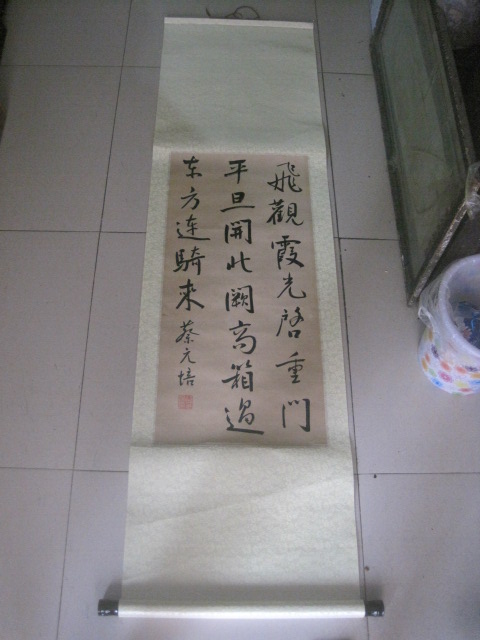 飛觀霞光啓重門
平旦開北闕高箱過
东方連騎来
蔡元培